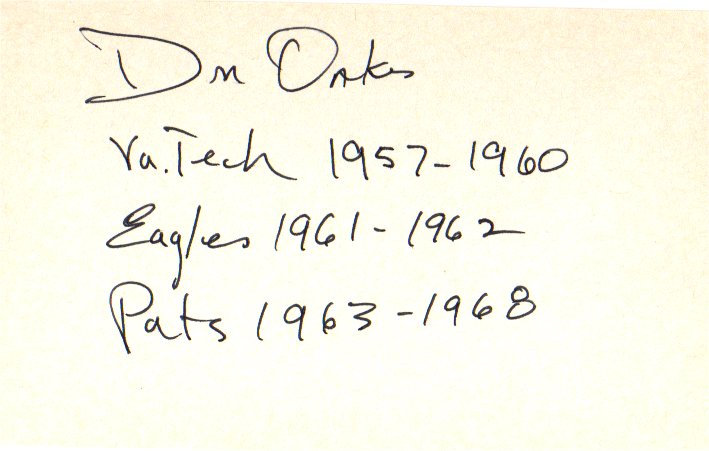 Don Oakes
Va. Tech 1957-1960
Eagles 1961-1962
Pats 1963-1968